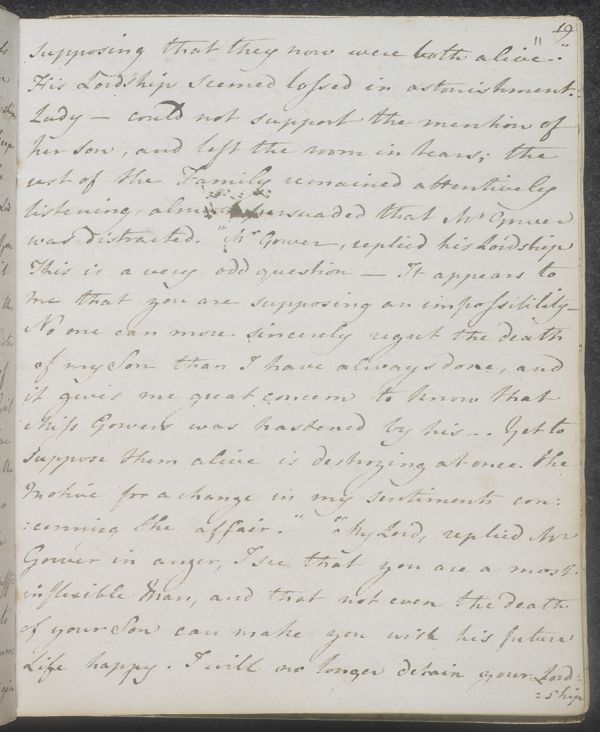 19
supposing that they now were both alive."
His Lordship seemed lossed in astonishment.
Lady — could not support the mention of
her son, and left the room in tears; the
rest of the Family remained attentively
listening, almost persuaded that Mr Gower
was distracted. "Mr Gower, replied his Lordship
This is a very odd question — It appears to
me that you are supposing an impossibility —
No one can more sincerely regret the death
of my Son than I have always done, and
it gives me great concern to know that
Miss Gowers was hastened by his —. Yet to
suppose them alive is destroying at once the
Motive for a change in my sentiments con:
:cerning the affair." "My Lord, replied Mr
Gower in anger, I see that you are a most
inflexible Man, and that not even the death
of your Son can make you wish his future
Life happy. I will no longer detain your Lord=
=ship